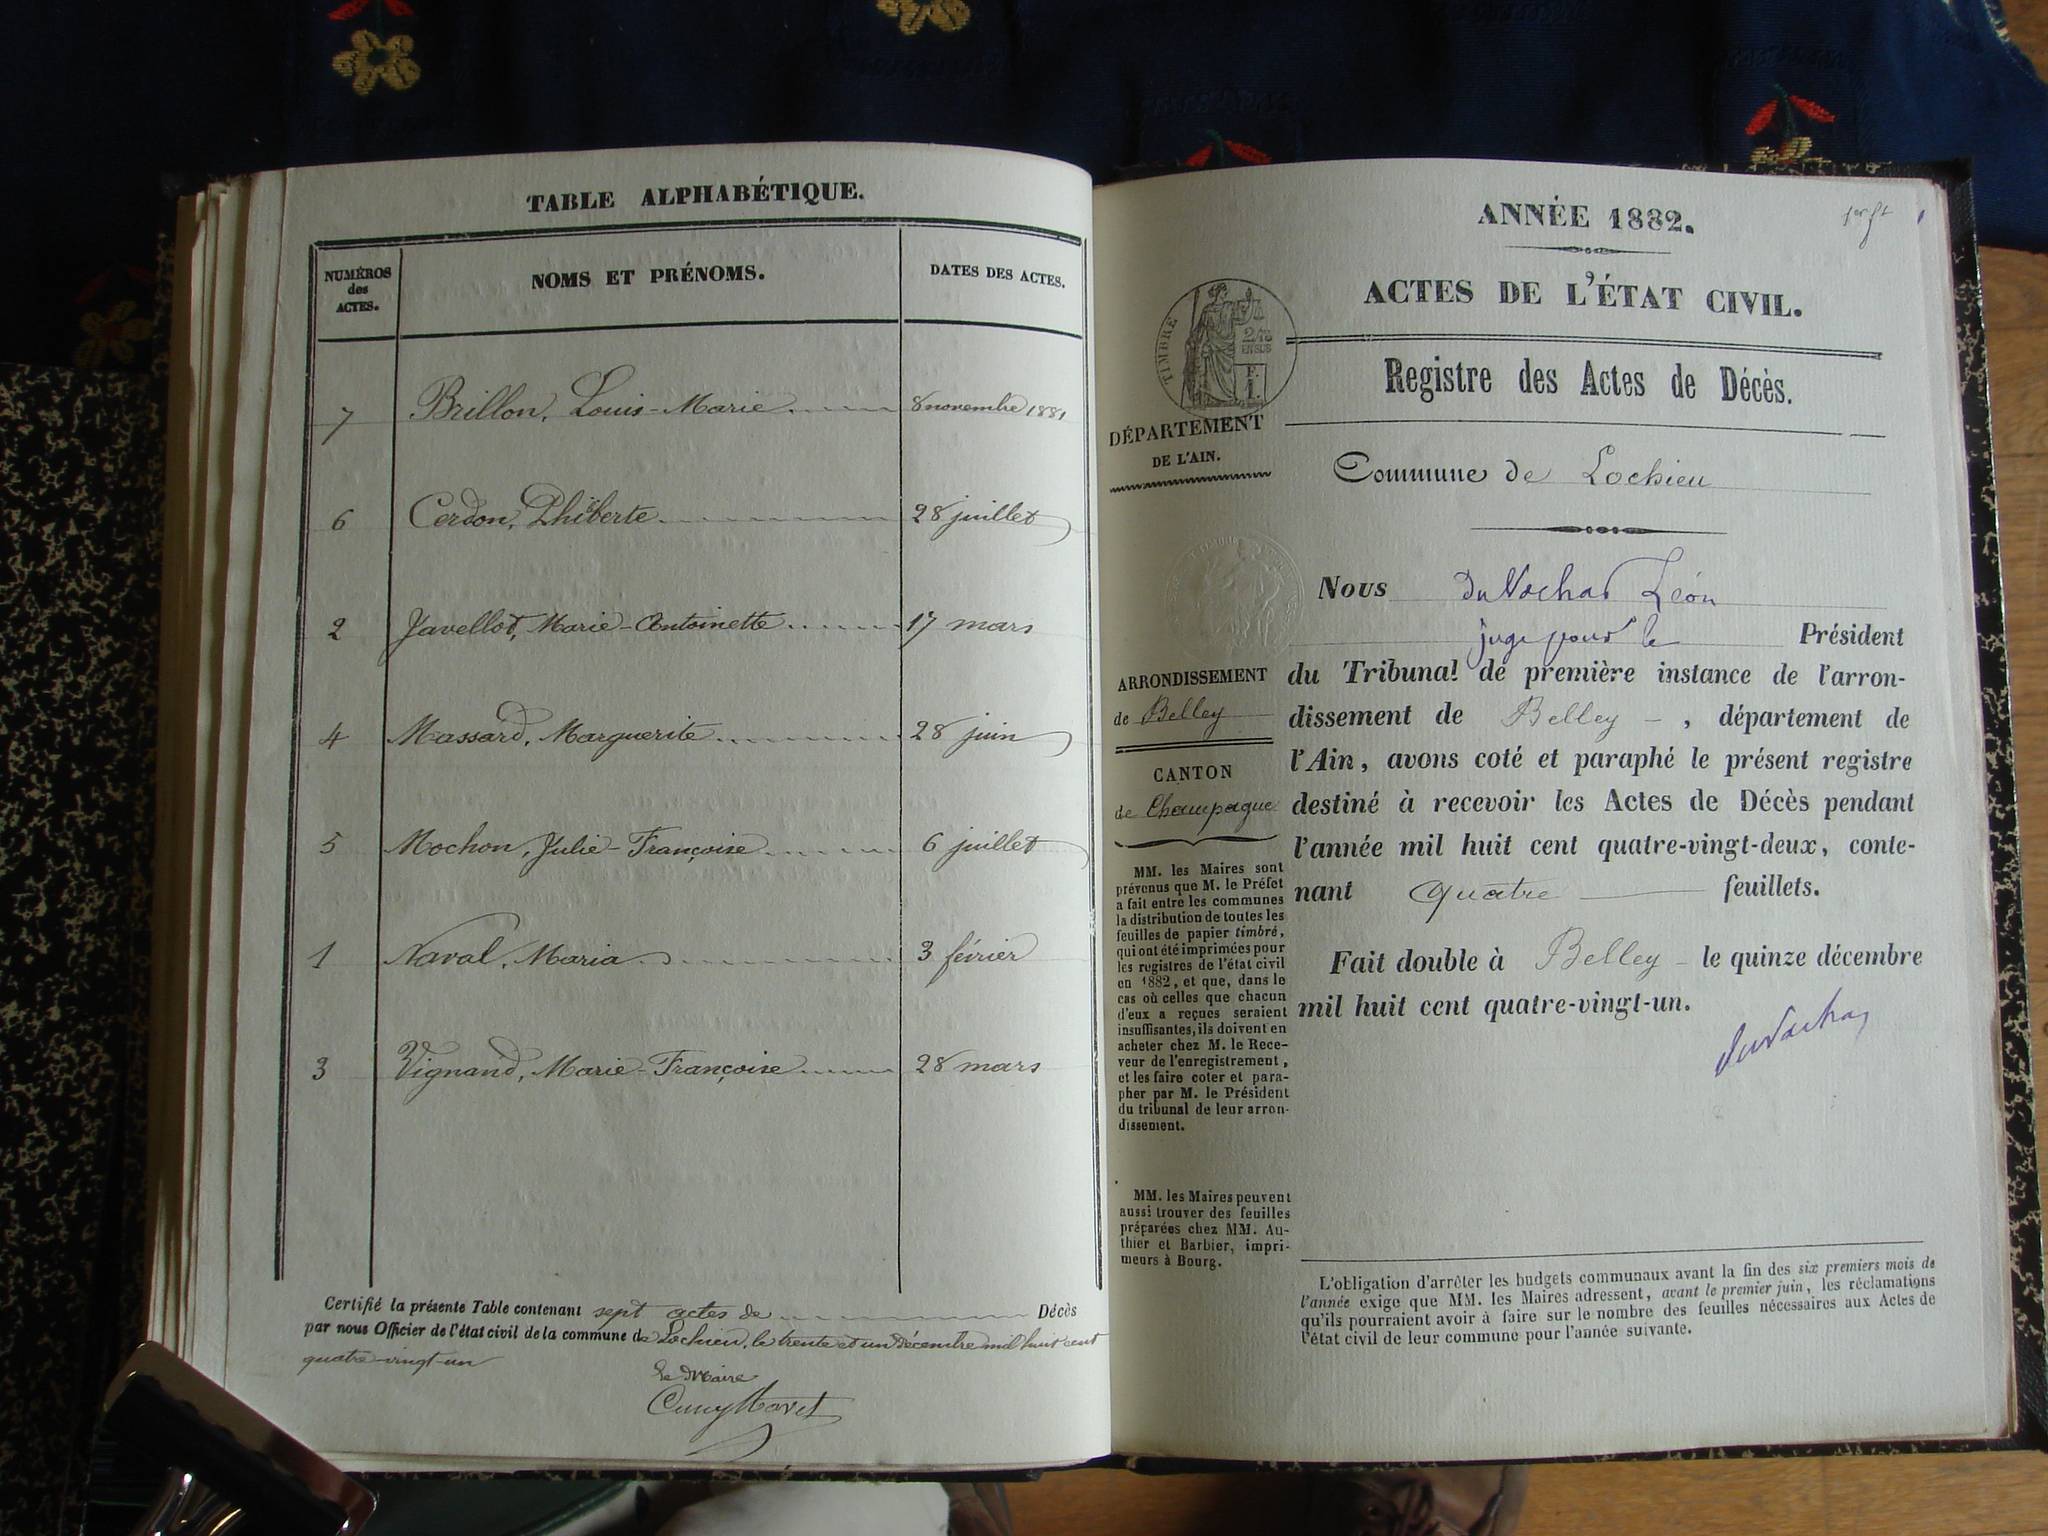 TABLE ALPHABÉTIQUE.
NUMÉROS
des
ACTES.
NOMS ET PRÉNOMS.
DATES DES ACTES.
7 Brillon, Louis-Marie 8 novembre 1881
6 Cerdon, Philiberte 28 juillet
2 Javellot, Marie-Antoinette 17 mars
4 Massard, Marguerite 28 juin
5 Mochon, Julie-Françoise 6 juillet
1 Naval, Maria 3 février
3 Vignand, Marie-Françoise 28 mars
Certifié la présente Table contenant sept actes de Décès
par nous Officier de l'état civil de la commune de Lochieu, le trente et un Décembre mil huit cent
quatre-vingt-un
Le Maire
ANNÉE 1882.
ACTES DE L'ÉTAT CIVIL.
Registre des Actes de Décès.
TIMBRE
EN SUS
DÉPARTEMENT
DE L'AIN.
Commune de Lochieu
Nous Léon
juge pour le Président
du Tribunal de première instance de l'arron-
dissement de Belley, département de
l'Ain, avons coté et paraphé le présent registre
destiné à recevoir les Actes de Décès pendant
l'année mil huit cent quatre-vingt-deux, conte-
nant quatre feuillets.
Fait double à Belley le quinze décembre
mil huit cent quatre-vingt-un.
ARRONDISSEMENT
de Belley
CANTON
de Champagne
MM. les Maires sont
prévenus que M. le Préfet
a fait entre les communes
la distribution de toutes les
feuilles de papier timbré,
qui ont été imprimées pour
les registres de l'état civil
en 1882, et que, dans le
cas où celles que chacun
d'eux a reçues seraient
insuffisantes, ils doivent en
acheter chez M. le Rece-
veur de l'enregistrement,
et les faire coter et para-
pher par M. le Président
du tribunal de leur arron-
dissement.
MM. les Maires peuvent
aussi trouver des feuilles
préparées chez MM. Au-
thier et Barbier, impri-
meurs à Bourg.
L'obligation d'arrêter les budgets communaux avant la fin des six premiers mois de
l'année exige que MM. les Maires adressent, avant le premier juin, les réclamations
qu'ils pourraient avoir à faire sur le nombre des feuilles nécessaires aux Actes de
l'état civil de leur commune pour l'année suivante.